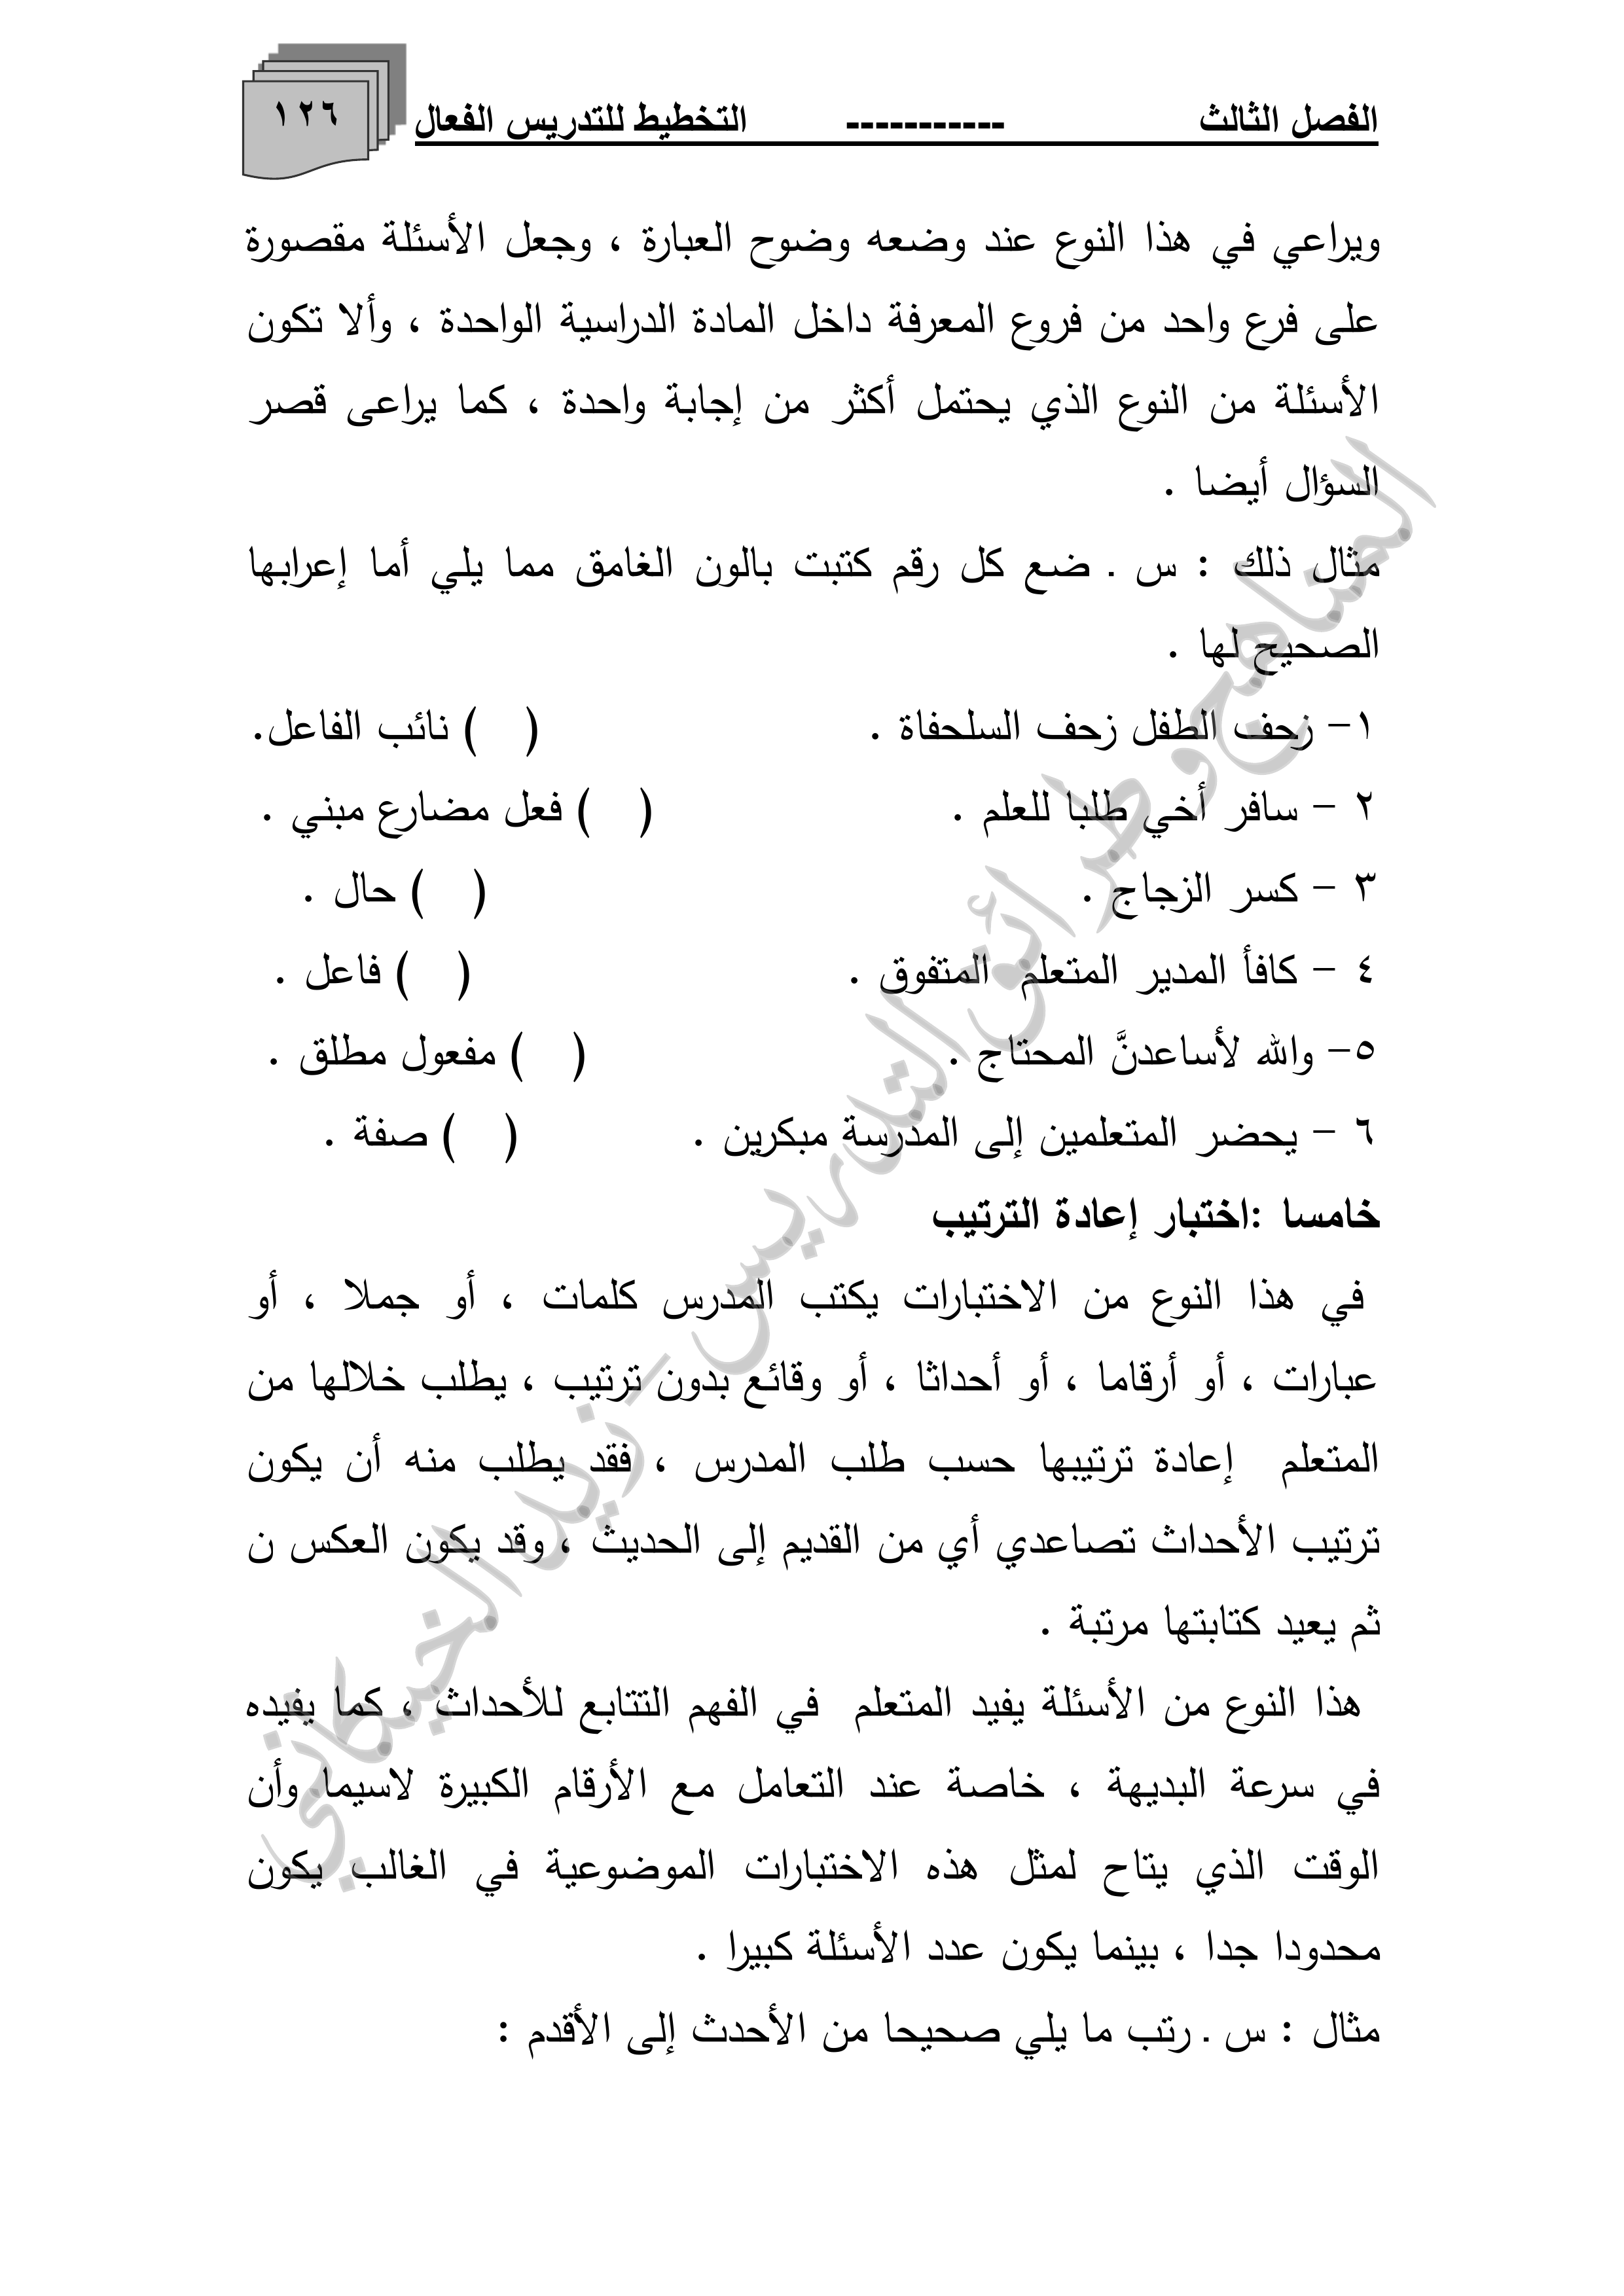 الفصل الثالث ----------- التخطيط للتدريس الفعال ١٢٦
ويراعي في هذا النوع عند وضعه وضوح العبارة ، وجعل الأسئلة مقصورة
على فرع واحد من فروع المعرفة داخل المادة الدراسية الواحدة ، وألا تكون
الأسئلة من النوع الذي يحتمل أكثر من إجابة واحدة ، كما يراعى قصر
السؤال أيضا .
مثال ذلك : س ـ ضع كل رقم كتبت بالون الغامق مما يلي أما إعرابها
الصحيح لها .
١- زحف الطفل زحف السلحفاة . ( ) نائب الفاعل.
٢ - سافر أخي طلبا للعلم . ( ) فعل مضارع مبني .
٣ - كسر الزجاج . ( ) حال .
٤ - كافأ المدير المتعلم المتفوق . ( ) فاعل .
٥- والله لأساعدنَّ المحتاج . ( ) مفعول مطلق .
٦ - يحضر المتعلمين إلى المدرسة مبكرين . ( ) صفة .
خامسا :اختبار إعادة الترتيب
في هذا النوع من الاختبارات يكتب المدرس كلمات ، أو جملا ، أو
عبارات ، أو أرقاما ، أو أحداثا ، أو وقائع بدون ترتيب ، يطلب خلالها من
المتعلم إعادة ترتيبها حسب طلب المدرس ، فقد يطلب منه أن يكون
ترتيب الأحداث تصاعدي أي من القديم إلى الحديث ، وقد يكون العكس ن
ثم يعيد كتابتها مرتبة .
هذا النوع من الأسئلة يفيد المتعلم في الفهم التتابع للأحداث ، كما يفيده
في سرعة البديهة ، خاصة عند التعامل مع الأرقام الكبيرة لاسيما وأن
الوقت الذي يتاح لمثل هذه الاختبارات الموضوعية في الغالب يكون
محدودا جدا ، بينما يكون عدد الأسئلة كبيرا .
مثال : س ـ رتب ما يلي صحيحا من الأحدث إلى الأقدم :
المناهج وطرائق التدريس - زيد الخيكاني